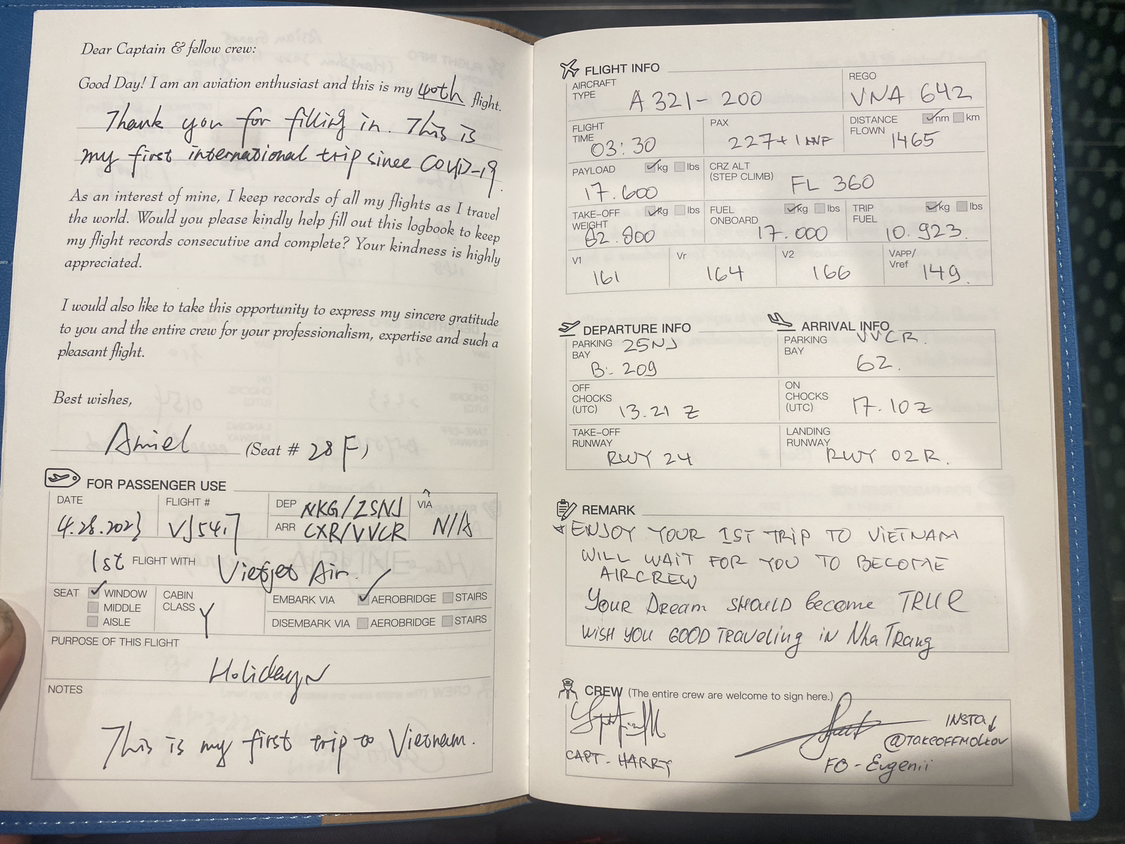 Dear Captain & fellow crew:
Good Day! I am an aviation enthusiast and this is my 40th flight.
Thank you for filling in. This is
my first international trip since COVID-19.
As an interest of mine, I keep records of all my flights as I travel
the world. Would you please kindly help fill out this logbook to keep
my flight records consecutive and complete? Your kindness is highly
appreciated.
I would also like to take this opportunity to express my sincere gratitude
to you and the entire crew for your professionalism, expertise and such a
pleasant flight.
Best wishes,
Amiel (Seat # 28F)
FOR PASSENGER USE
DATE
4.28.2023
FLIGHT #
VJ5417
DEP NKG/ZSNJ
ARR CXR/VVCR
VIA
N/A
1st FLIGHT WITH Vietjet Air.
SEAT WINDOW
MIDDLE
AISLE
CABIN
CLASS Y
EMBARK VIA AEROBRIDGE STAIRS
DISEMBARK VIA AEROBRIDGE STAIRS
PURPOSE OF THIS FLIGHT
Holiday
NOTES
This is my first trip to Vietnam.
FLIGHT INFO
AIRCRAFT
TYPE
A 321-200
REGO
VNA 642
FLIGHT
TIME
03:30
PAX
227+1 INF
DISTANCE
FLOWN
nm km
1465
PAYLOAD kg lbs
17.600
CRZ ALT
(STEP CLIMB)
FL 360
TAKE-OFF
WEIGHT
kg lbs
62.800
FUEL
ONBOARD
kg lbs
17.000
TRIP
FUEL
kg lbs
10.923.
V1
161
Vr
164
V2
166
VAPP/
Vref
149.
DEPARTURE INFO
PARKING
BAY
ZSNJ
B: 209
OFF
CHOCKS
(UTC)
13.21 Z
TAKE-OFF
RUNWAY
RWY 24
ARRIVAL INFO
PARKING
BAY
VVCR.
62.
ON
CHOCKS
(UTC)
17.10Z
LANDING
RUNWAY
RWY 02R.
REMARK
ENJOY YOUR 1ST TRIP TO VIETNAM
WILL WAIT FOR YOU TO BECOME
AIRCREW
Your Dream should become TRUE
WISH YOU GOOD Traveling in Nha Trang
CREW (The entire crew are welcome to sign here.)
CAPT - HARRY
INSTA
FO - Evgenii